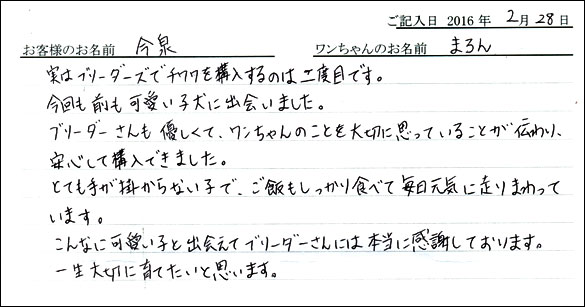 ご記入日 2016 年 2月 28日
お客様のお名前 今泉 ワンちゃんのお名前 まろん
実はブリーダーズでチワワを購入するのは二度目です。
今回も前も可愛い子犬に出会いました。
ブリーダーさんも優しくて、ワンちゃんのことを大切に思っていることが伝わり、
安心して購入できました。
とても手が掛からない子で、ご飯もしっかり食べて毎日元気に走りまわって
います。
こんなに可愛い子と出会えてブリーダーさんには本当に感謝しております。
一生大切に育てたいと思います。